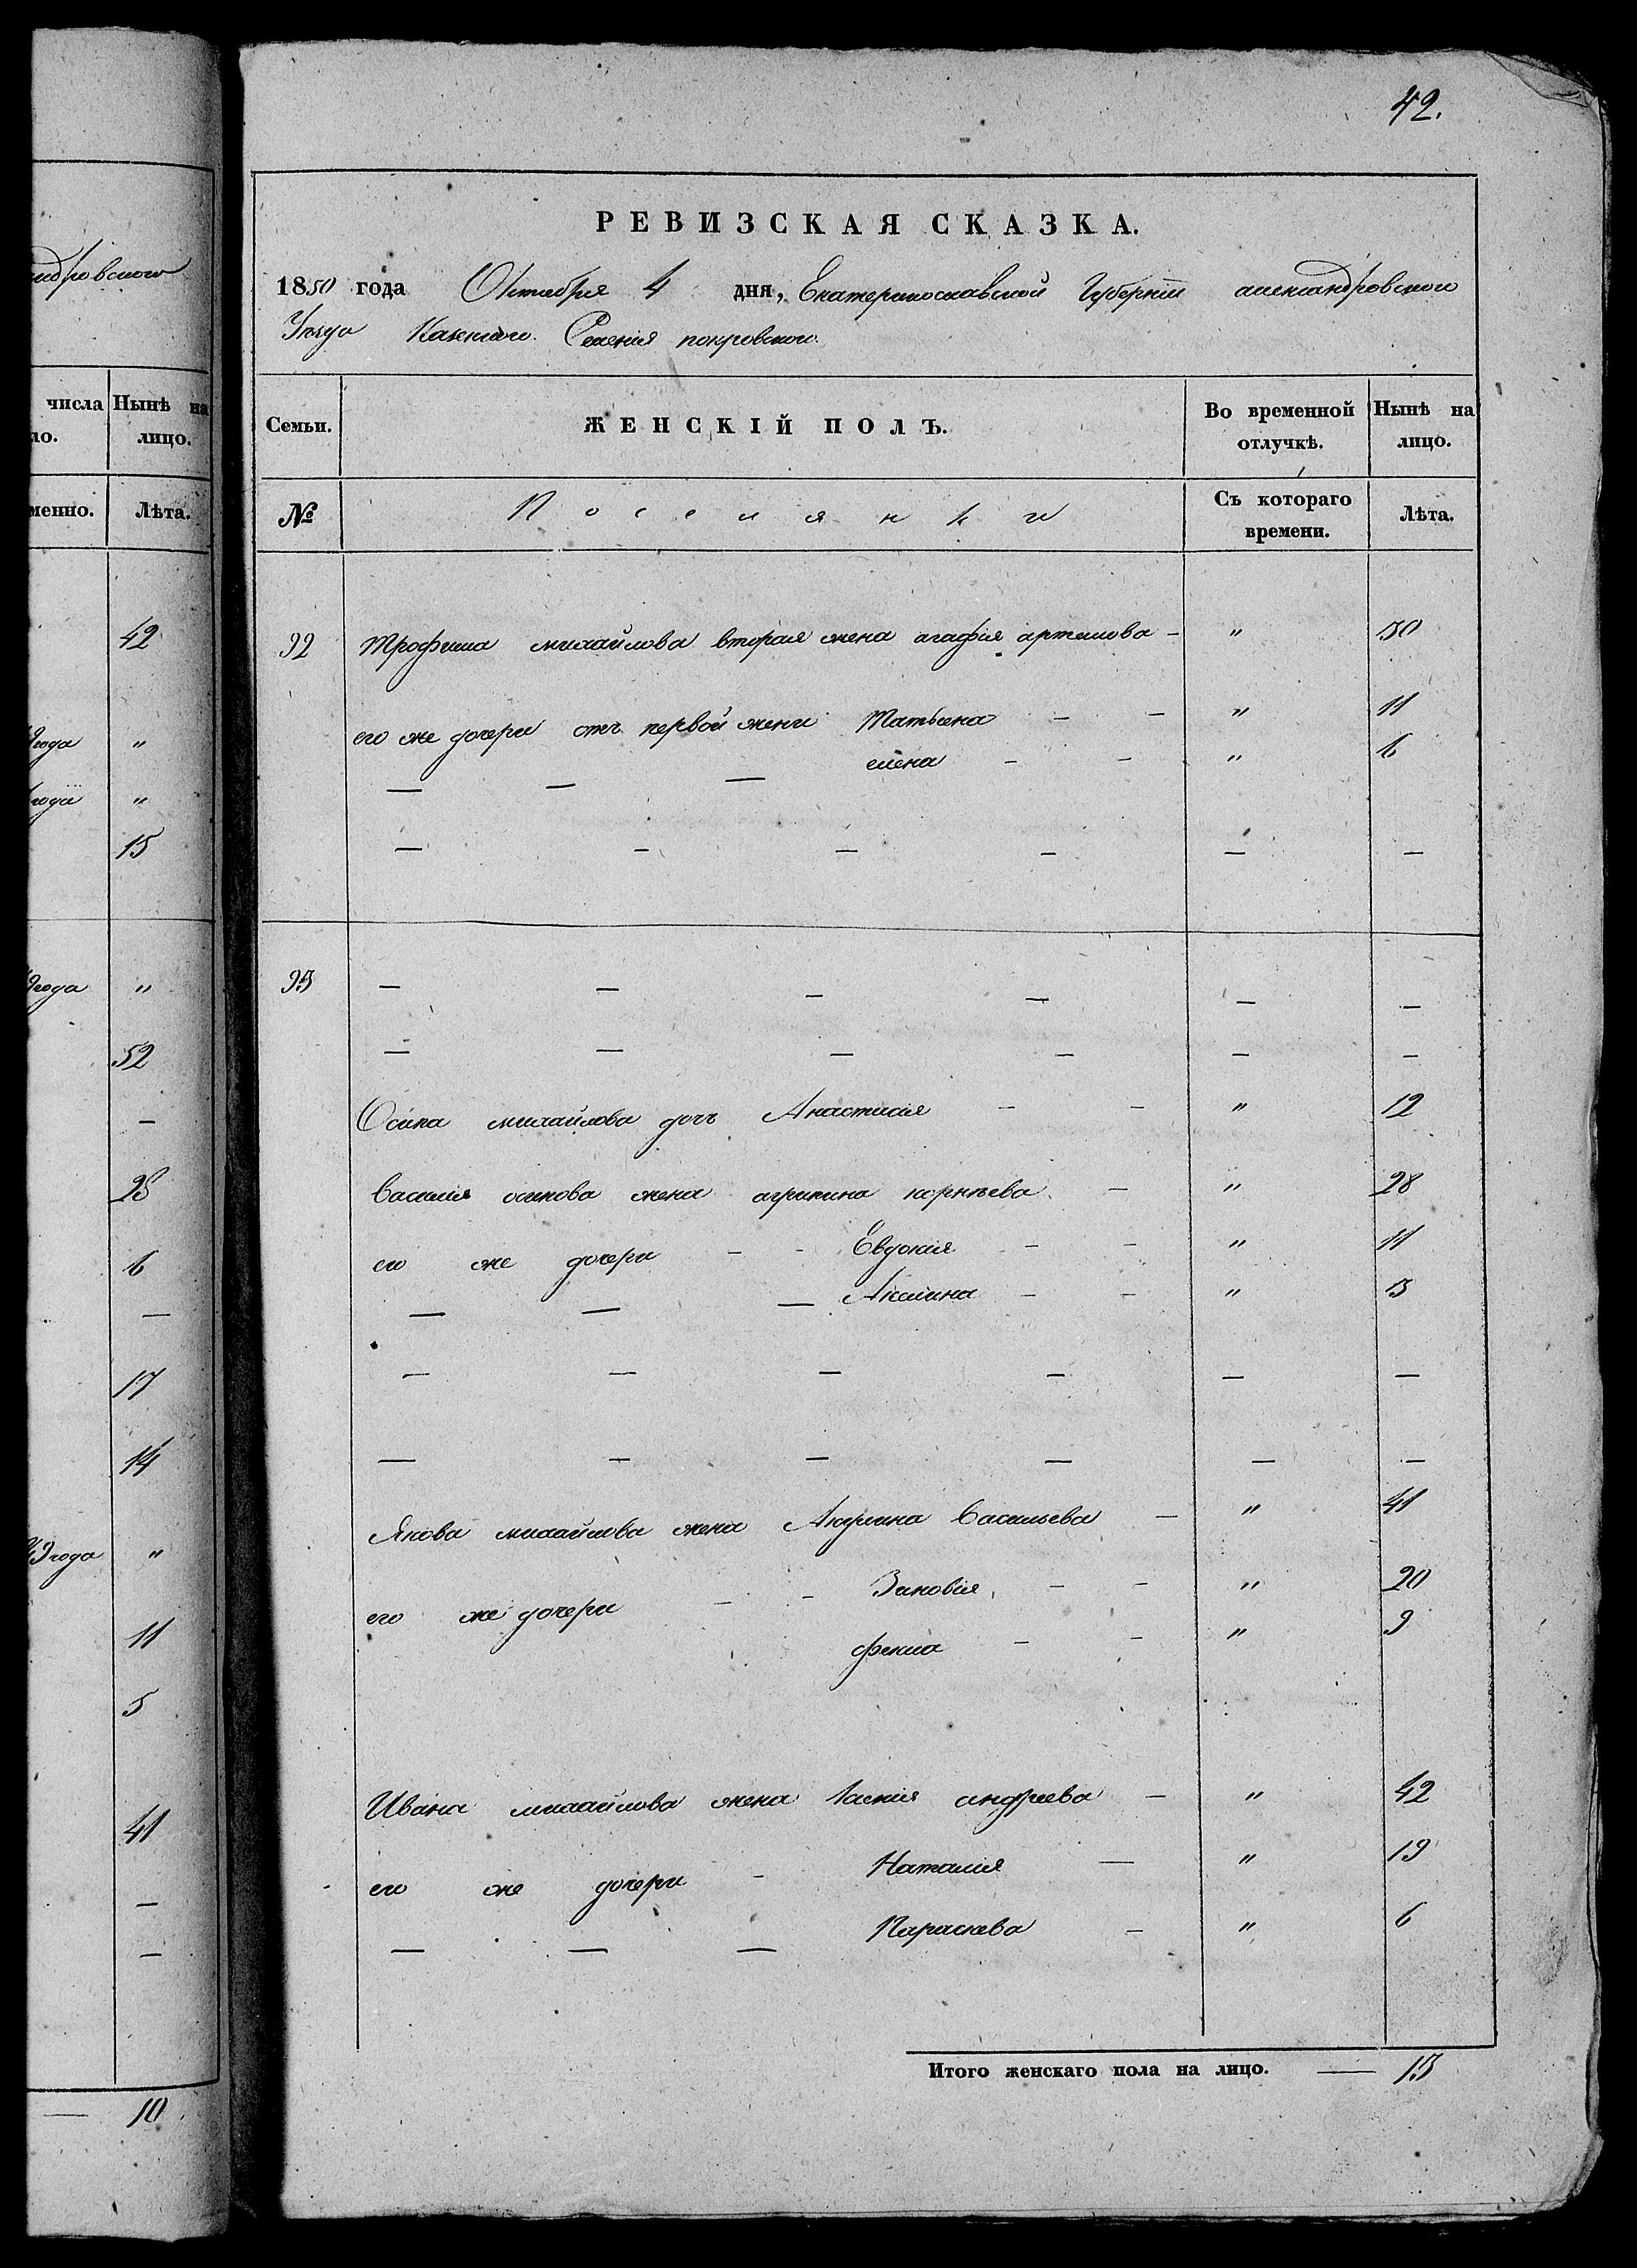 42.
РЕВИЗСКАЯ СКАЗКА.
1850 года Октября 4 дня, Екатеринославской Губерніи александровского
Уѣзда Казенного Селенія покровского.
Семьи. ЖЕНСКІЙ ПОЛЪ. Во временной отлучкѣ. Нынѣ на лицо.
№ Поселянки Съ котораго времени. Лѣта.
92 Трофима михайлова вторая жена агафія артемова — " 30
его же дочери отъ первой жены Татьяна — — " 11
— — — елена — — " 6
— — — — — —
93 — — — — — —
— — — — — —
Осипа михайлова дочь Анастасія — — " 12
василія осипова жена агрипина корнѣева — " 28
его же дочери — — Евдокія — — " 11
— — — Акилина — — " 3
— — — — — —
— — — — — —
Якова михайлова жена Василъева — " 41
его же дочери — — Зиновія — — " 20
фекла — — " 9
Ивана михайлова жена андреева — " 42
его же дочери — Наталія — " 19
— — — Параскева — " 6
Итого женскаго пола на лицо. — 13
ндровского
числа Нынѣ на
ло. лицо.
менно. Лѣта.
42
года "
года "
15
года "
52
—
25
6
—
17
14
года "
11
5
41
—
—
— 10